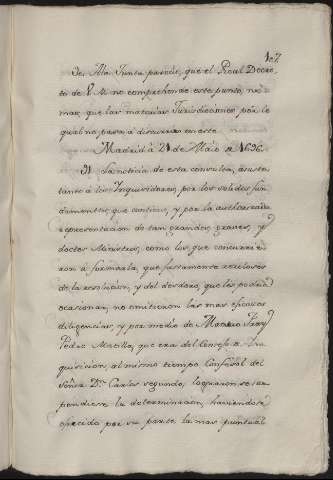 107
De Alta Junta parecio, que el Real Decre-
to de V. M. no comprehende este punto, no
mas, que las materias Jurisdicciones por lo
qual no pasa a discurrir en este
Madrid à 21 de Maio de 1696.
31 La noticia de esta consulta, asusto
tanto à los Inquisidores, por los solidos fun
damentos, que contiene, y por la authorizada
representacion de tan grandes, graves, y
doctos Ministros, como los que concurrie
ron à formarla, que justamente rezelosos
de la resolucion, y del desdoro, que les podia
ocasionar, no omitieron las mas eficaces
diligencias, y por medio de Maestro Fray
Pedro Matilla, que era del Consejo de In
quisicion, al mismo tiempo Confesor del
Señor Dn. Carlos segundo, lograron se sus
pendiese la determinacion, haviendose
ofrecido por su parte la mas puntual